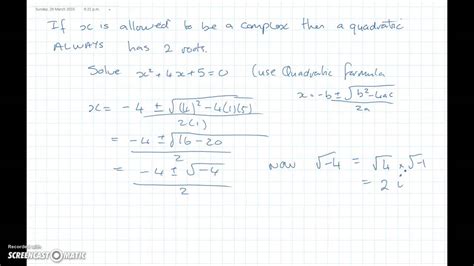 Sunday, 29 March 2020 4:31 p.m.
If x is allowed to be a complex then a quadratic
ALWAYS has 2 roots.
Solve x² + 4x + 5 = 0 (use Quadratic formula
x = -b ± √(b² - 4ac) / 2a
x = -4 ± √((4)² - 4(1)(5)) / 2(1)
= -4 ± √(16 - 20) / 2
= -4 ± √-4 / 2
now √-4 = √4 × √-1
= 2 i
Recorded with
SCREENCAST-O-MATIC